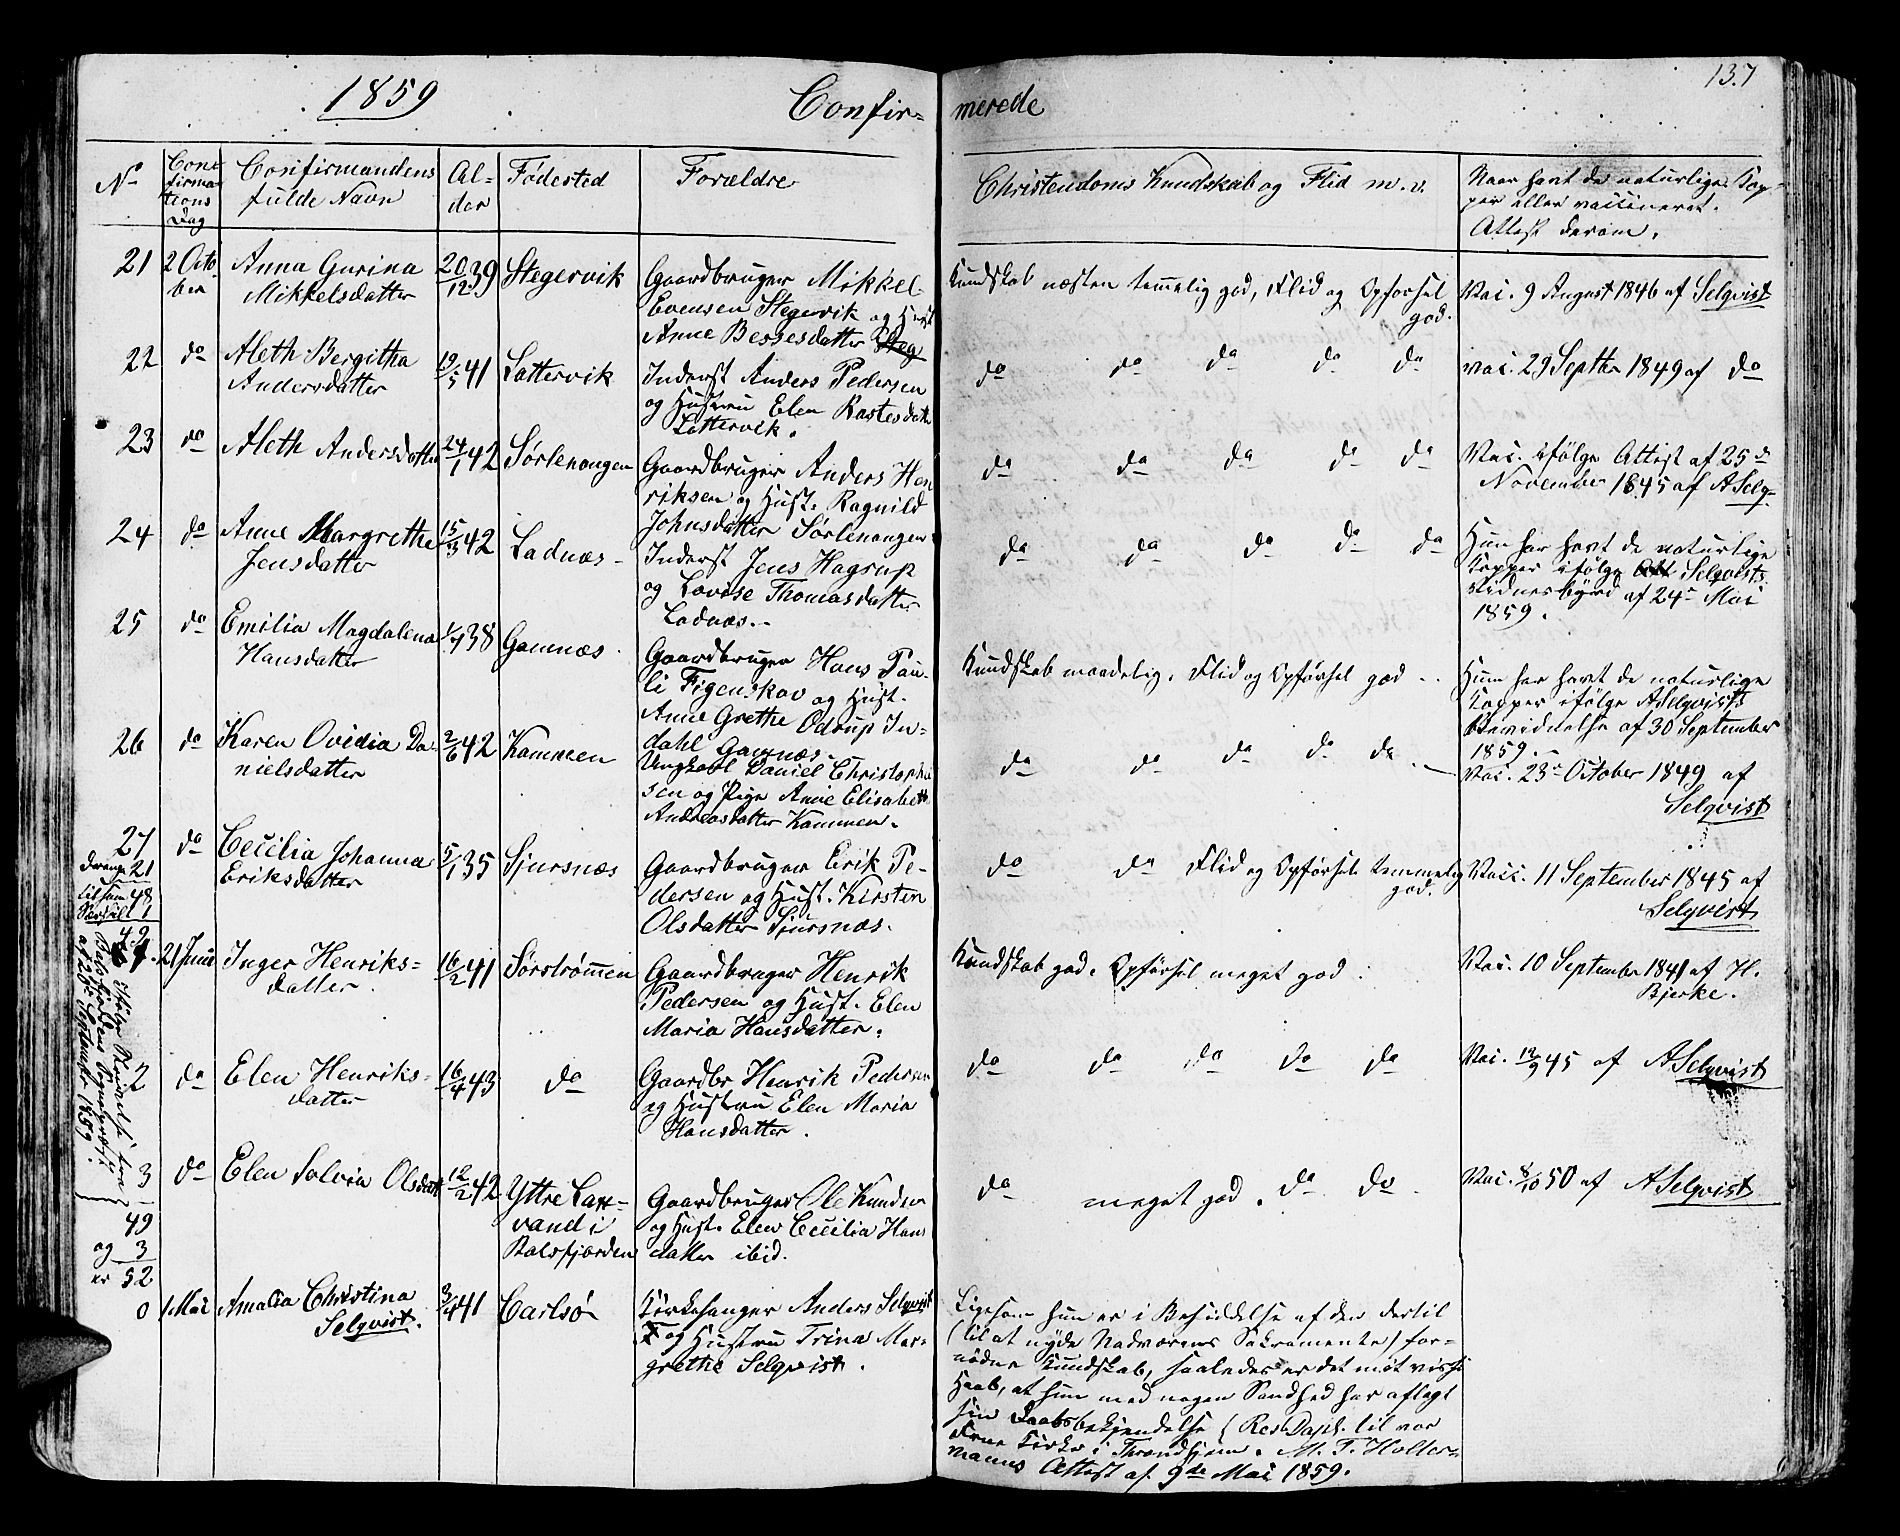 1859
Confir=
merede
137
No
Con=
firma=
tions
Dag
Confirmandens
fulde Navn
Al=
der
Fødested
Forældre
Christendoms Kundskab og Flid m. v.
Naar havt de naturlige Kop=
per eller vaccineret.
Attest derom.
21
2 Octo
ber
Anna Gurina
Mikkelsdatter
20/12 39
Stegervik
Gaardbruger Mikkel
Evensen Stegervik og Hust
Anne Bessesdatter Steg
Kundskab næsten temmelig god, Flid og Opførsel
god.
Vac. 9 August 1846 af Selqvist
22
do
Aleth Bergitha
Andersdatter
19/5 41
Lattervik
Inderst Anders Pedersen
og Hustru Elen Rastesdatt
Lattervik.
do do do do do
vac. 29 Septbr 1849 af do
23
do
Aleth Andersdatter
24/1 42
Sørlenangen
Gaardbruger Anders Hen
riksen og Hust. Ragnild
Johnsdatter Sørlenangen
do do do do do
Vac. ifølge Attest af 25de
November 1845 af ASelq-
24
do
Anne Margrethe
Jensdatter
15/3 42
Ladnæs
Inderst Jens Hagrup
og Lovise Thomasdatter
Ladnæs.
do do do do do
Hun har havt de naturlige
Kopper ifølge Att Selqvists
Vidnesbyrd af 24de Mai
1859.
25
do
Emilia Magdalena
Hansdatter
38
Gamnæs
Gaardbruger Hans Pau=
li Figenskov og Hust.
Anne Grethe Odrup In=
dahl Gamnæs.
Kundskab maadelig. Flid og Opførsel god
Hun har havt de naturlige
Kopper ifølge ASelqvists
Bevidnelse af 30 September
1859.
26
do
Karen Ovidia Da=
nielsdatter
2/6 42
Kammen
Ungkarl Daniel Christophe
sen og Pige Anne Elisabeth
Andreasdatter Kammen.
do do do do do
Vac. 23de October 1849 af
Selqvist
27
do
Cecilia Johanna
Eriksdatter
5/1 35
Sjursnæs
Gaardbruger Erik Pe=
dersen og Hust. Kirsten
Olsdatter Sjursnæs.
do do Flid og Opførsel temmelig
god.
Vac. 11 September 1845 af
Selqvist
21
tilsam 48
1
49
1.
21 Juni
Inger Henriks=
datter.
16/2 41
Sørstrømen
Gaardbruger Henrik
Pedersen og Hust. Elen
Maria Hansdatter.
Kundskab god. Opførsel meget god.
Vac. 10 September 1841 af H.
Bjerke.
ifølge Skrivelse fra
Balsfjordens Sognepræst
af 26de September 1859.
2
do
Elen Henriks=
datter
16/4 43
do
Gaardbr Henrik Pedersen
og Hustru Elen Maria
Hansdatter.
do do do do do
Vac. 12/9 45 af ASelqvist
3
do
Elen Solvia Olsdatt
12/2 42
Yttre Lax=
vand i
Balsfjorden
Gaardbruger Ole Knudsen
og Hust. Elen Cecilia Hans
datter ibid.
do meget god. do do
Vac. 8/10 50 af ASelqvist
49
og 3
er 52
0
1 Mai
Amalia Christina
Selqvist.
3/4 41
Carlsø
Kirkesanger Anders Selqvist
og Hustru Trina Mar=
grethe Selqvist.
Ligesom hun er i Besiddelse af den dertil
(til at nyde Nadverens Sakramente) for=
nødne Kundskab, saaledes er det mit visse
Haab, at hun med nogen Sandhed har aflagt
sin Daabsbekjendelse (Res Dapl. til vor
Frue Kirke i Throndhjem. M. F. Holter=
manns Attest af 9de Mai 1859.